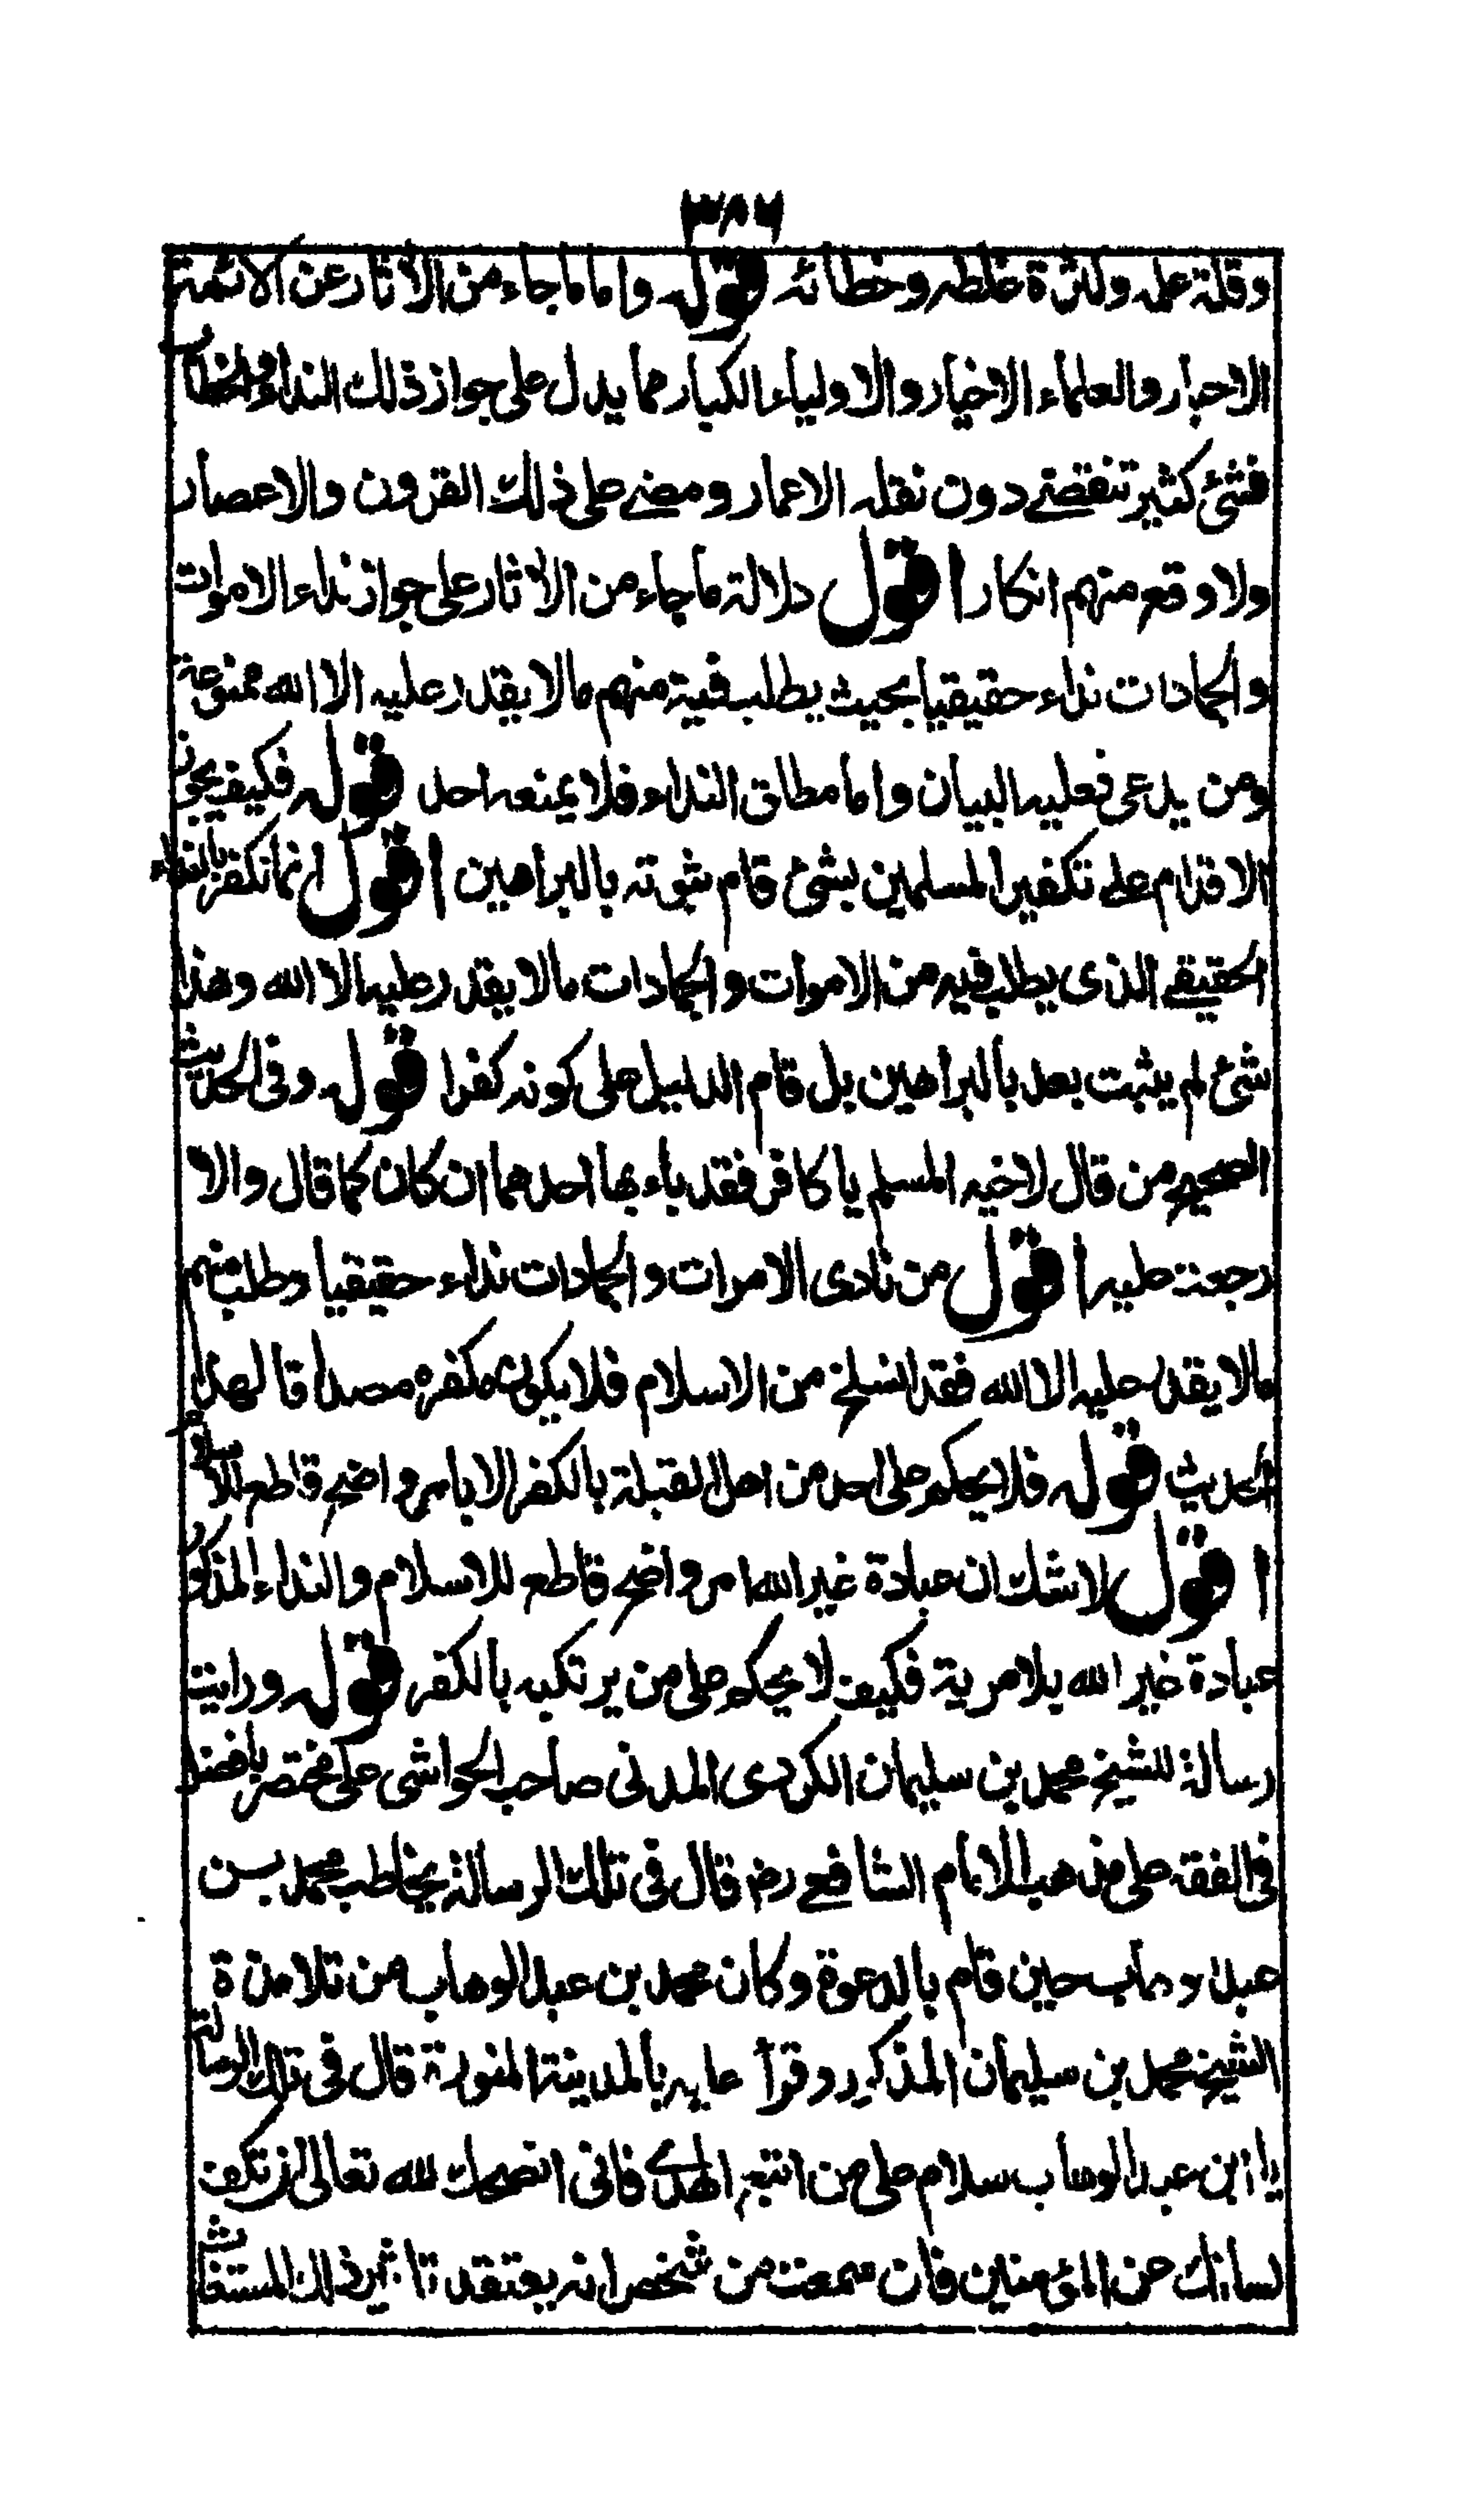 ٣٨٦
وقلة علمه وكثرة غلطه وخطائه قوله واما ما جاء من الاثار عن الائمة
الاحبار والعلماء الاخيار والاولياء الكبار مما يدل على جواز ذلك النداء والخطاب
فشئ كثير تنقضے دون نقله الاعمار ومضے على ذلك القرون والاعصار
ولا وقع منهم انكار اقول دلالة ما جاء من الاثار على جواز نداء الاموات
والجمادات نداء حقيقيا بحيث يطلب فيه منهم ما لا يقدر عليه الا الله ممنوعة
ومن يدعى فعليه البيان واما مطلق النداء فلا يمنعه احد قوله فكيف يجوز
الاقدام على تكفير المسلمين بشئ قام ثبوته بالبراهين اقول انما نكفر بالنداء
الحقيقے الذى يطلب فيه من الاموات والجمادات ما لا يقدر عليه الا الله وهذا
شئ لم يثبت بعد بالبراهين بل قام الدليل على كونه كفرا قوله وفى الحديث
الصحيح من قال لاخيه المسلم يا كافر فقد باء بها احدهما ان كان كما قال والا
رجعت عليه اقول من نادى الاموات والجمادات نداء حقيقيا وطلب منهم
ما لا يقدر عليه الا الله فقد انسلخ من الاسلام فلا يكون مكفره مصداقا لهذا
الحديث قوله فلا يحكم على احد من اهل القبلة بالكفر الا بامر واضح قاطع للاسلام
اقول لا شك ان عبادة غير الله امر واضح قاطع للاسلام والنداء المذكور
عبادة غير الله بلا مرية فكيف لا يحكم على من يرتكبه بالكفر قوله ورايت
رسالة للشيخ محمد بن سليمان الكردى المدنى صاحب الحواشى على مختصر بافضل
فى الفقه على مذهب الامام الشافعے رض قال فى تلك الرسالة يخاطب محمد بن
عبد الوهاب حين قام بالدعوة وكان محمد بن عبد الوهاب من تلامذة
الشيخ محمد بن سليمان المذكور وقرأ عليه بالمدينة المنورة قال فى تلك الرسالة
يا ابن عبد الوهاب سلام على من اتبع الهدى فانى انصحك لله تعالى ان تكف
لسانك عن المؤمنين فان سمعت من شخص انه يعتقد تاثير ذلك المستغاث